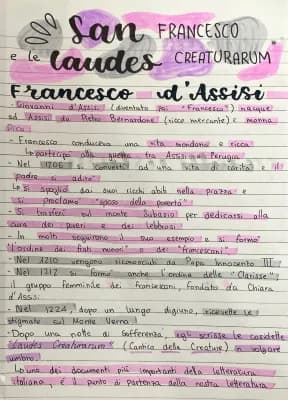 San FRANCESCO
e le laudes CREATURARUM"
Francesco d'Assisi
- Giovanni d'Assisi (diventato poi "Francesco") nasque
ad Assisi da Pietro Bernardone (ricco mercante) e monna
Pica
- Francesco conduceva una vita mondana e ricca
↳ partecipò alla guerra tra Assisi e Perugia
- Nel 1206 si convertì ad una vita di carità e il
padre si adirò
↳ si spogliò dai suoi ricchi abiti nella piazza e
si proclamò "sposo della povertà"
- Si trasferì sul monte Subasio per dedicarsi alla
cura dei poveri e dei lebbrosi
- In molti seguirono il suo esempio e si formò
l'ordine dei frati minori o dei "francescani"
- Nel 1210 vengono riconosciuti da Papa Innocenzo III
- Nel 1212 si formò anche l'ordine delle "Clarisse",
il gruppo femminile dei francescani, fondato da Chiara
d'Assisi
- Nel 1224, dopo un lungo digiuno, ricevette le
stigmate sul Monte Verna
- Dopo una notte di sofferenza, egli scrisse le cosidette
"Laudes Creaturarum" (Cantico delle Creature) in volgare
umbro
↳ uno dei documenti più importanti della letteratura
italiana, è il punto di partenza della nostra letteratura